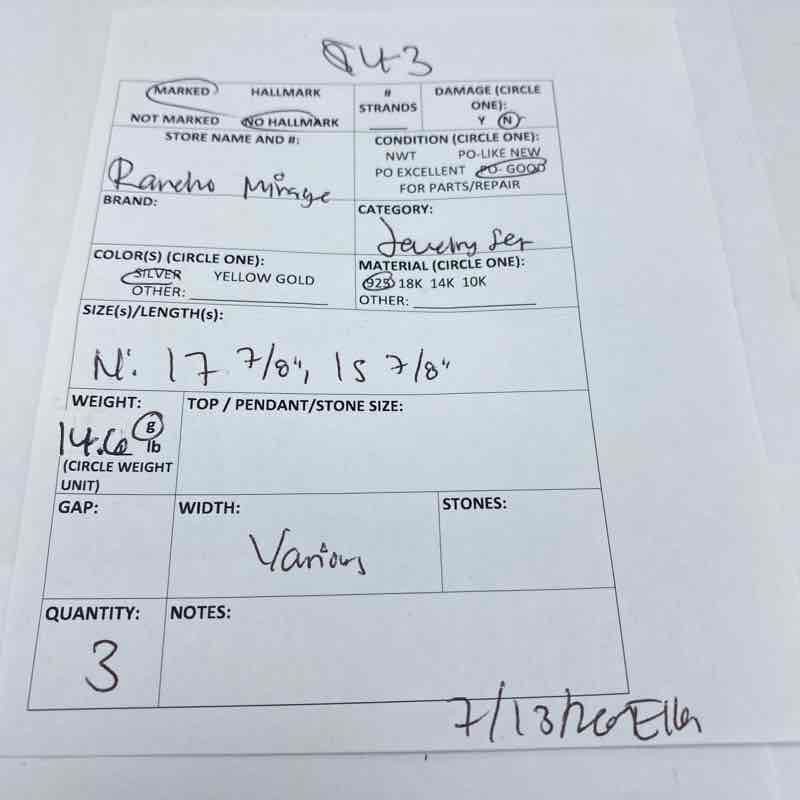 $43
MARKED HALLMARK
NOT MARKED NO HALLMARK
# STRANDS
DAMAGE (CIRCLE ONE):
Y N
STORE NAME AND #:
Rancho Mirage
CONDITION (CIRCLE ONE):
NWT PO-LIKE NEW
PO EXCELLENT PO- GOOD
FOR PARTS/REPAIR
BRAND:
CATEGORY:
Jewelry Set
COLOR(S) (CIRCLE ONE):
SILVER YELLOW GOLD
OTHER:
MATERIAL (CIRCLE ONE):
925 18K 14K 10K
OTHER:
SIZE(s)/LENGTH(s):
N: 17 7/8", 15 7/8"
WEIGHT:
14.6 g
lb
(CIRCLE WEIGHT
UNIT)
TOP / PENDANT/STONE SIZE:
GAP:
WIDTH:
Various
STONES:
QUANTITY:
3
NOTES:
7/13/26 Ella